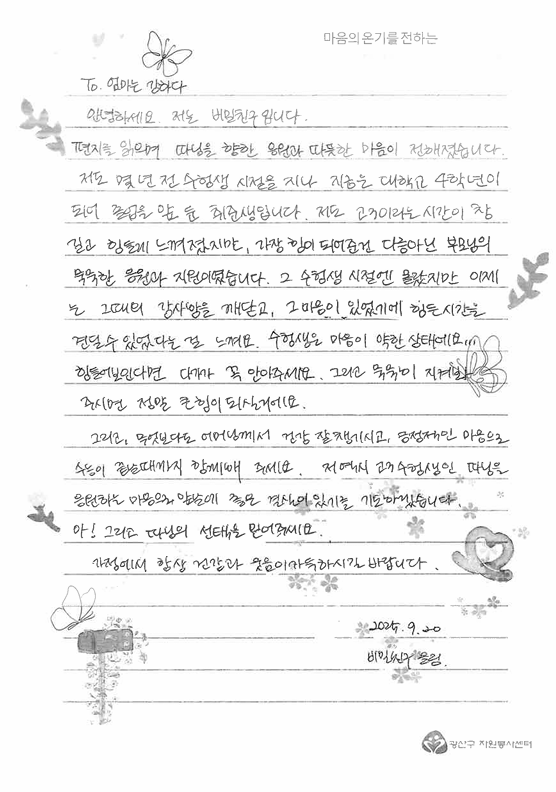 마음의 온기를 전하는
To. 엄마는 강하다
안녕하세요. 저는 비밀친구입니다.
편지를 읽으며 따님을 향한 응원과 따뜻한 마음이 전해졌습니다.
저도 몇 년 전 수험생 시절을 지나 지금은 대학교 4학년이
되어 졸업을 앞 둔 취준생입니다. 저도 고3이라는 시간이 참
길고 힘들게 느껴졌지만, 가장 힘이 되어준건 다름아닌 부모님의
묵묵한 응원과 지원이였습니다. 그 수험생 시절엔 몰랐지만 이제
는 그때의 감사함을 깨닫고, 그 마음이 있었기에 힘든 시간을
견딜 수 있었다는 걸 느껴요. 수험생은 마음이 약한 상태에요...
힘들어보인다면 다가가 꼭 안아주세요. 그리고 묵묵히 지켜봐
주시면 정말 큰 힘이 되실거에요.
그리고, 무엇보다도 어머님께서 건강 잘 챙기시고, 긍정적인 마음으로
수능이 끝날때까지 함께해 주세요. 저 역시 고3 수험생인 따님을
응원하는 마음으로 앞날에 좋은 결실이 있기를 기도하겠습니다.
아! 그리고 따님의 선택을 믿어주세요.
가정에서 항상 건강과 웃음이 가득하시길 바랍니다.
2025. 9. 20
비밀친구 올림.
광산구 자원봉사센터